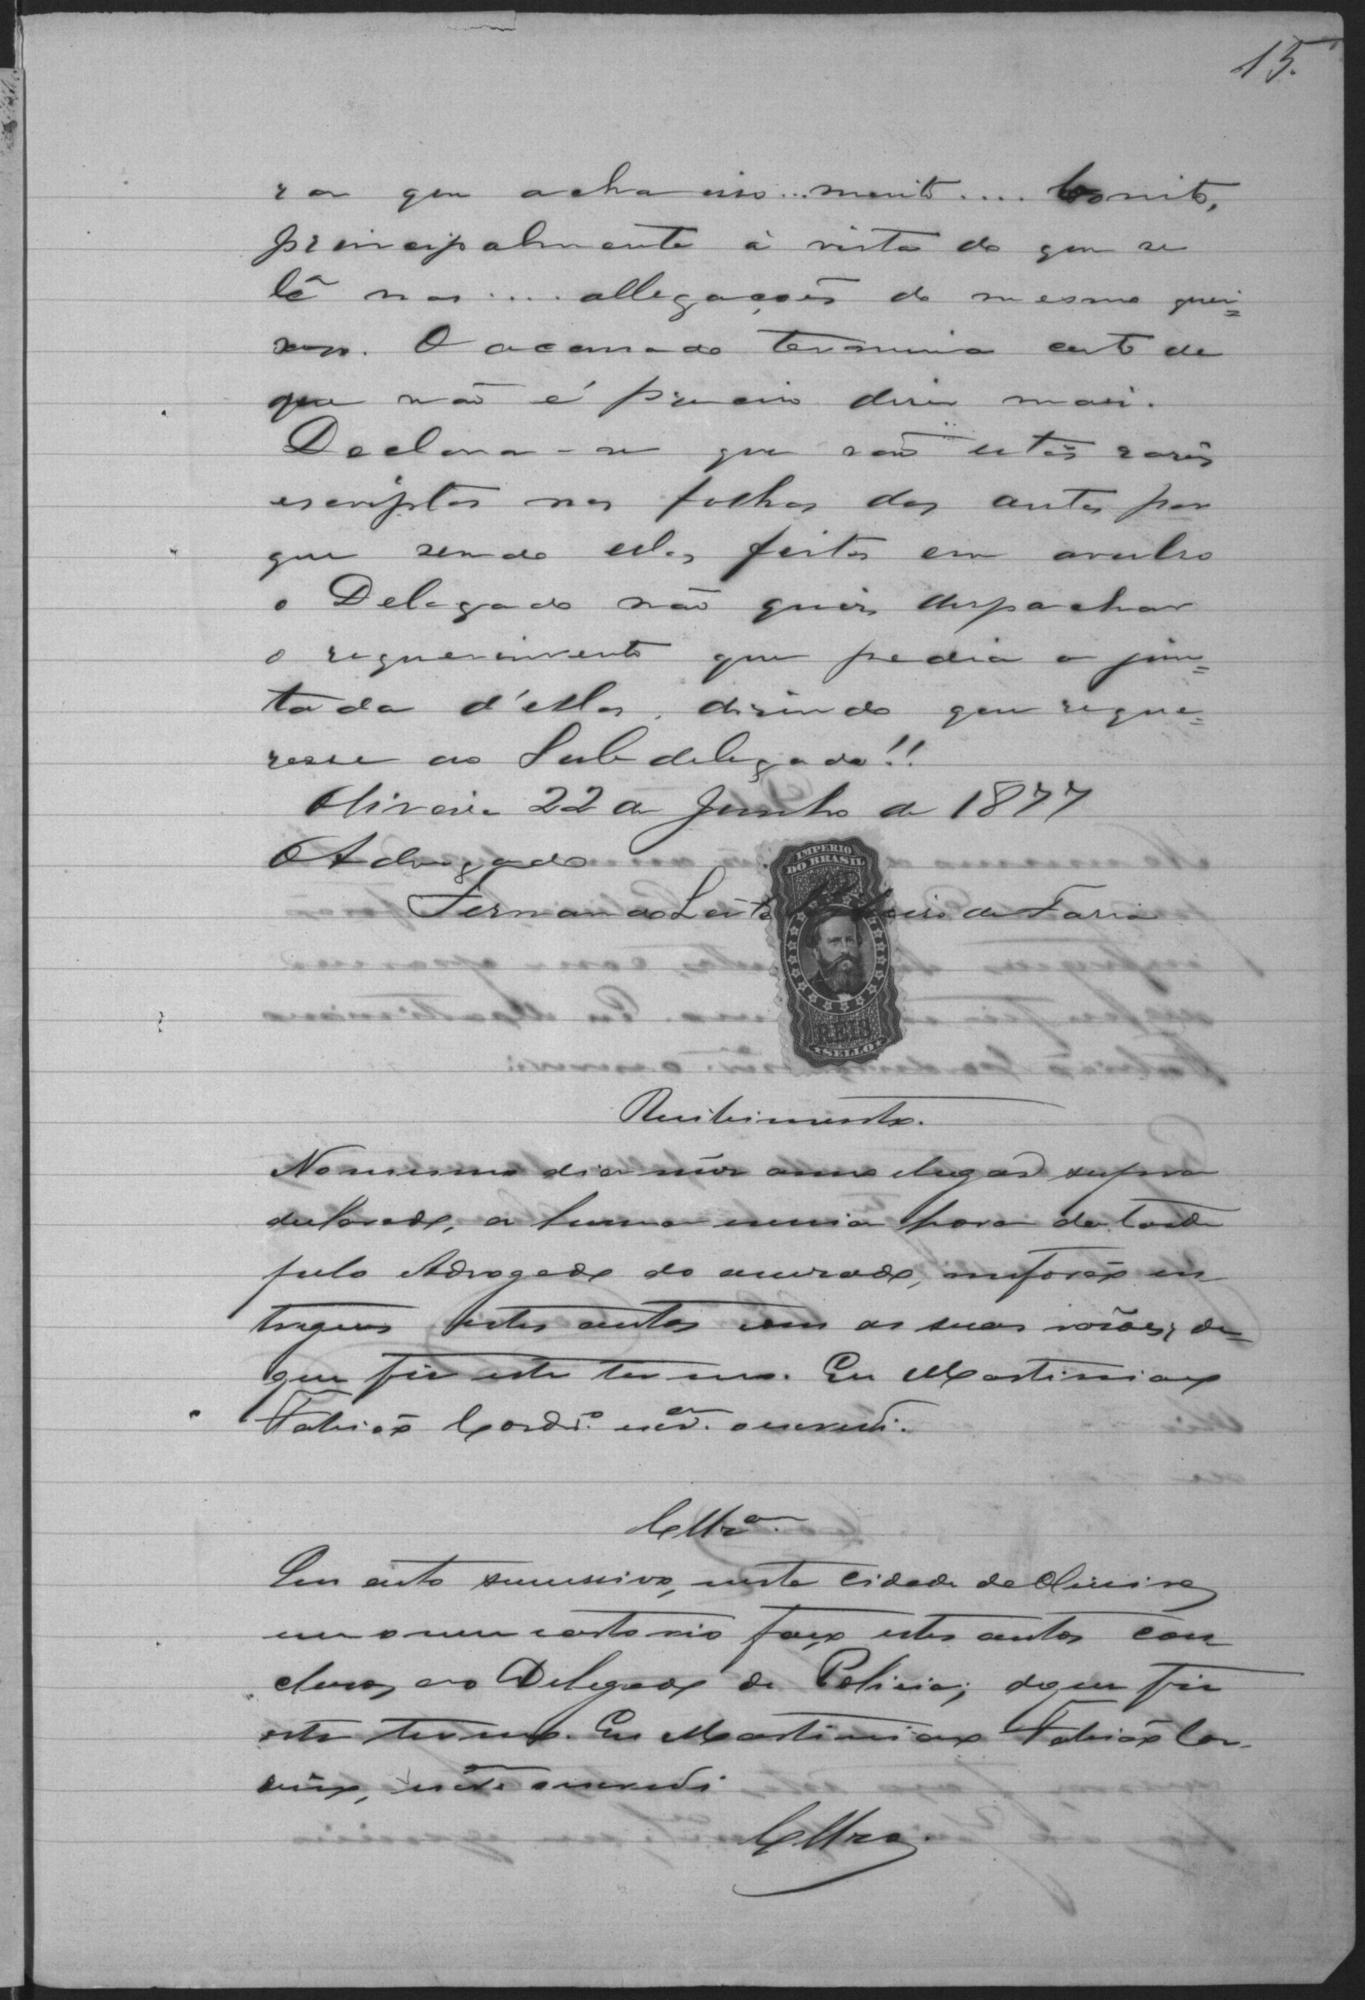 15.
ra que acha isso... muito.... bonito,
principalmente á vista do que se
lê nas.... allegações do mesmo quei=
xoso. O accusado termina certo de
que não é preciso diser mais.
Declara-se que vão estas rasões
escriptas nas folhas dos autos por
que sendo ellas feitas em avulso
o Delegado não quis despachar
o requerimento que pedia a jun=
tada d'ellas, disendo que reque=
resse ao Subdelegado!!
Oliveira 22 de Junho de 1877
O Advogado
Fernando Leite Ribeiro de Faria
IMPERIO
DO BRASIL
REIS
SELLO
Recebimento.
No mesmo dia mez anno e lugar supra
declarado, a huma meia hora da tarde
pelo Advogado do accusado, me forão en
tregues estes autos com as suas rasões; do=
que fiz este termo. Eu Martiniano
Fabião Cordr.º escr.am o escrevi.
Cllz.am
Em acto sucessivo, nesta cidade de Oliveira
em o meu cartorio faço estes autos con
clusos ao Delegado de Policia; do que fiz
este termo. Eu Martiniano Fabião Cor-
escrevi